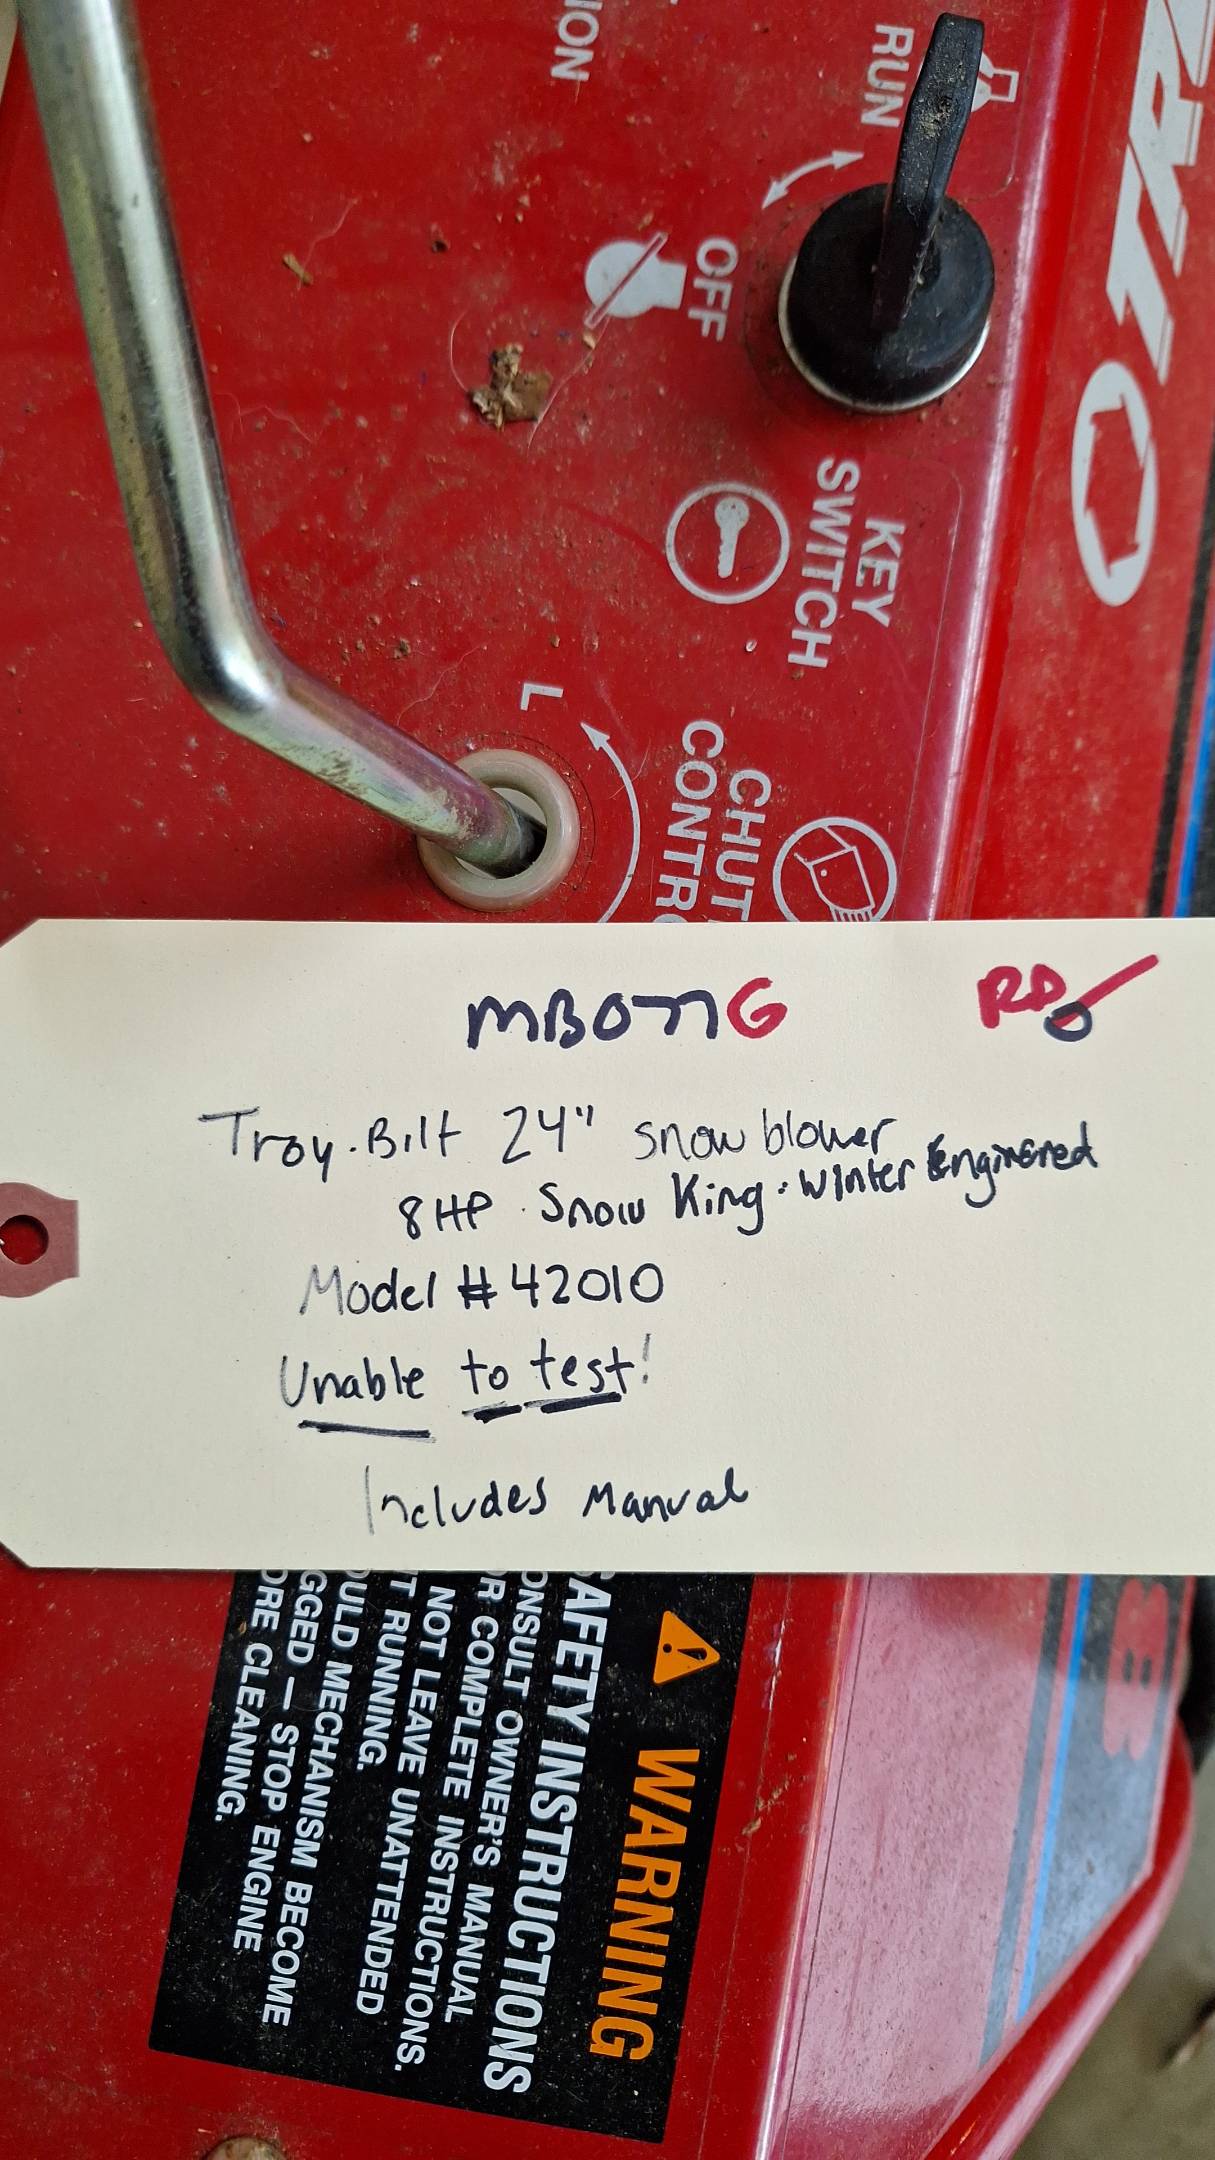 ION
RUN
OFF
TR
KEY
SWITCH
L
CHUT
CONTR
MB077G
RD
Troy-Bilt 24" snow blower
8HP. Snow King. Winter Enginered
Model #42010
Unable to test!
Includes Manual
8
WARNING
SAFETY INSTRUCTIONS
ONSULT OWNER'S MANUAL
R COMPLETE INSTRUCTIONS.
NOT LEAVE UNATTENDED
T RUNNING.
OULD MECHANISM BECOME
GGED — STOP ENGINE
ORE CLEANING.